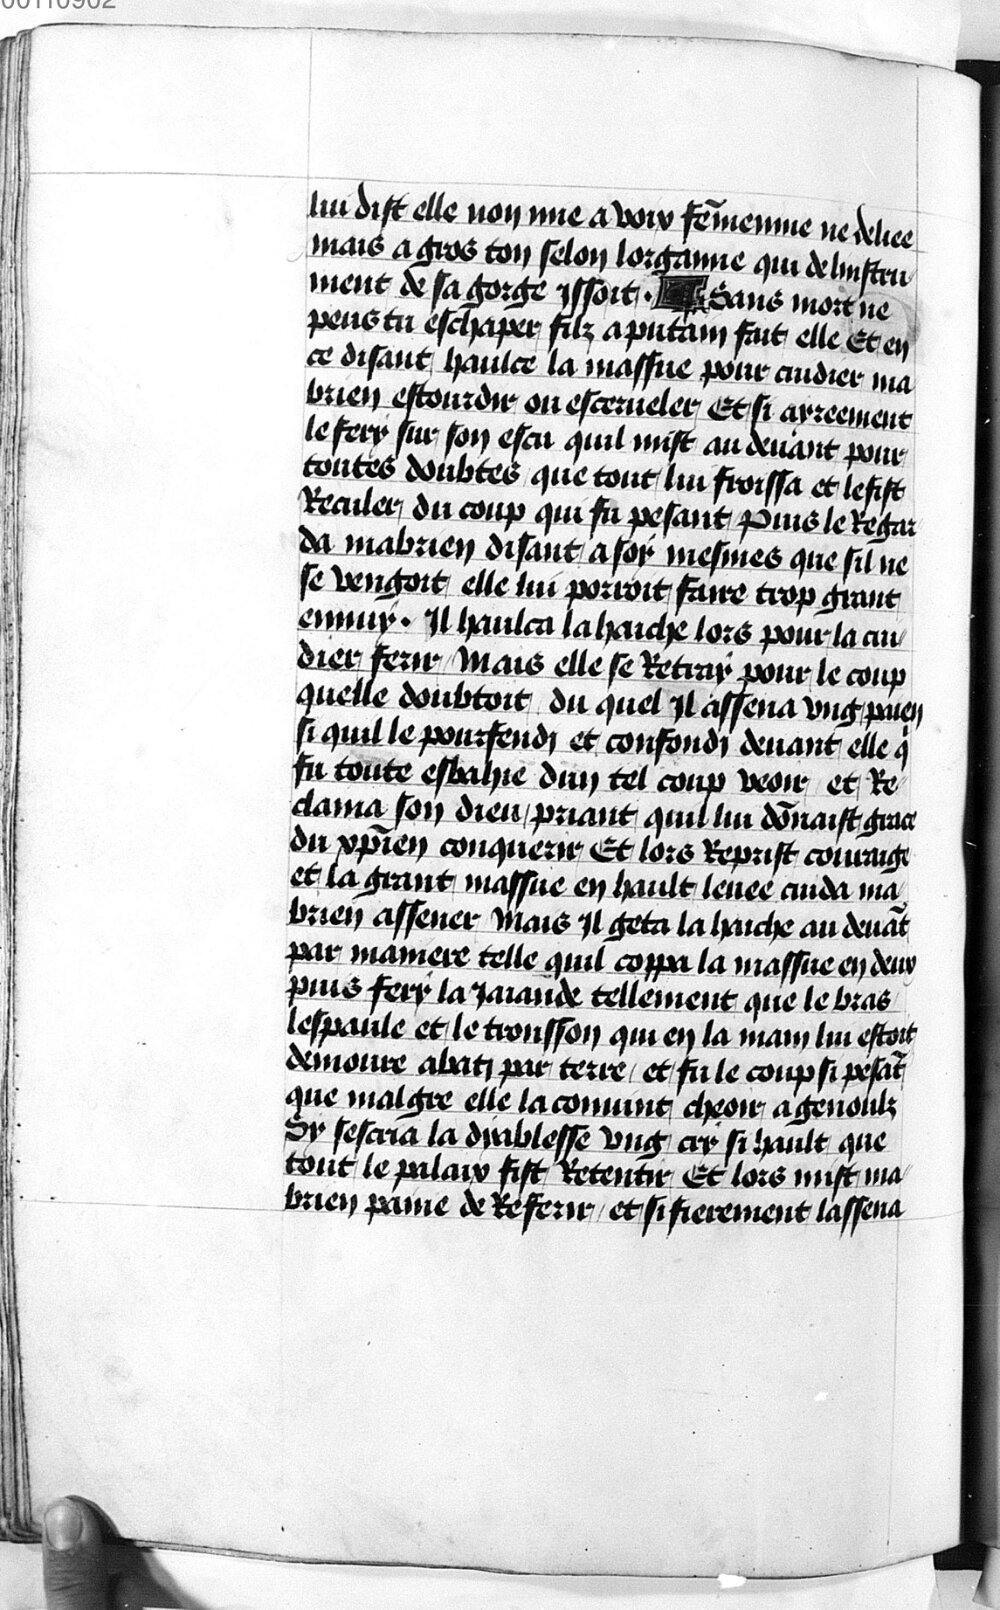 00110902
lui dist elle non mie a voix fēmenine ne deliee
mais a gros ton selon lorganne qui de linstru
ment de sa gorge yssoit . Sans mort ne
peus tu eschaper filz a putain fait elle Et en
ce disant haulce la massue pour cuidier ma
brien estourdir ou escerueler Et si ayreement
le fery sur son escu quil mist au deuant pour
toutes doubtes que tout lui froissa et le fist
Reculer du coup qui fu pesant Puis le Regar
da mabrien disant a soy mesmes que sil ne
se vengoit elle lui porroit faire trop grant
ennuy . Il haulca la haiche lors pour la cui
dier ferir / Mais elle se Retray pour le coup
quelle doubtoit du quel Il assena vng paien
si quil le pourfendi et confondi deuant elle q̄
fu toute esbahie dun tel coup veoir et Re
clama son dieu / priant quil lui dōnaist grace
du xpīen conquerir Et lors Reprist couraige
et la grant massue en hault leuee cuida ma
brien assener Mais Il geta la haiche au deuāt
par maniere telle quil coppa la massue en deux
puis fery la Jaiande tellement que le bras
lespaule et le tronsson qui en la main lui estoit
demoure abati par terre / et fu le coup si pesāt
que malgre elle la conuint cheoir a genoulz
Sy sescria la dyablesse vng cry si hault que
tout le palaix fist Retentir Et lors mist ma
brien paine de Referir / et si fierement lassena